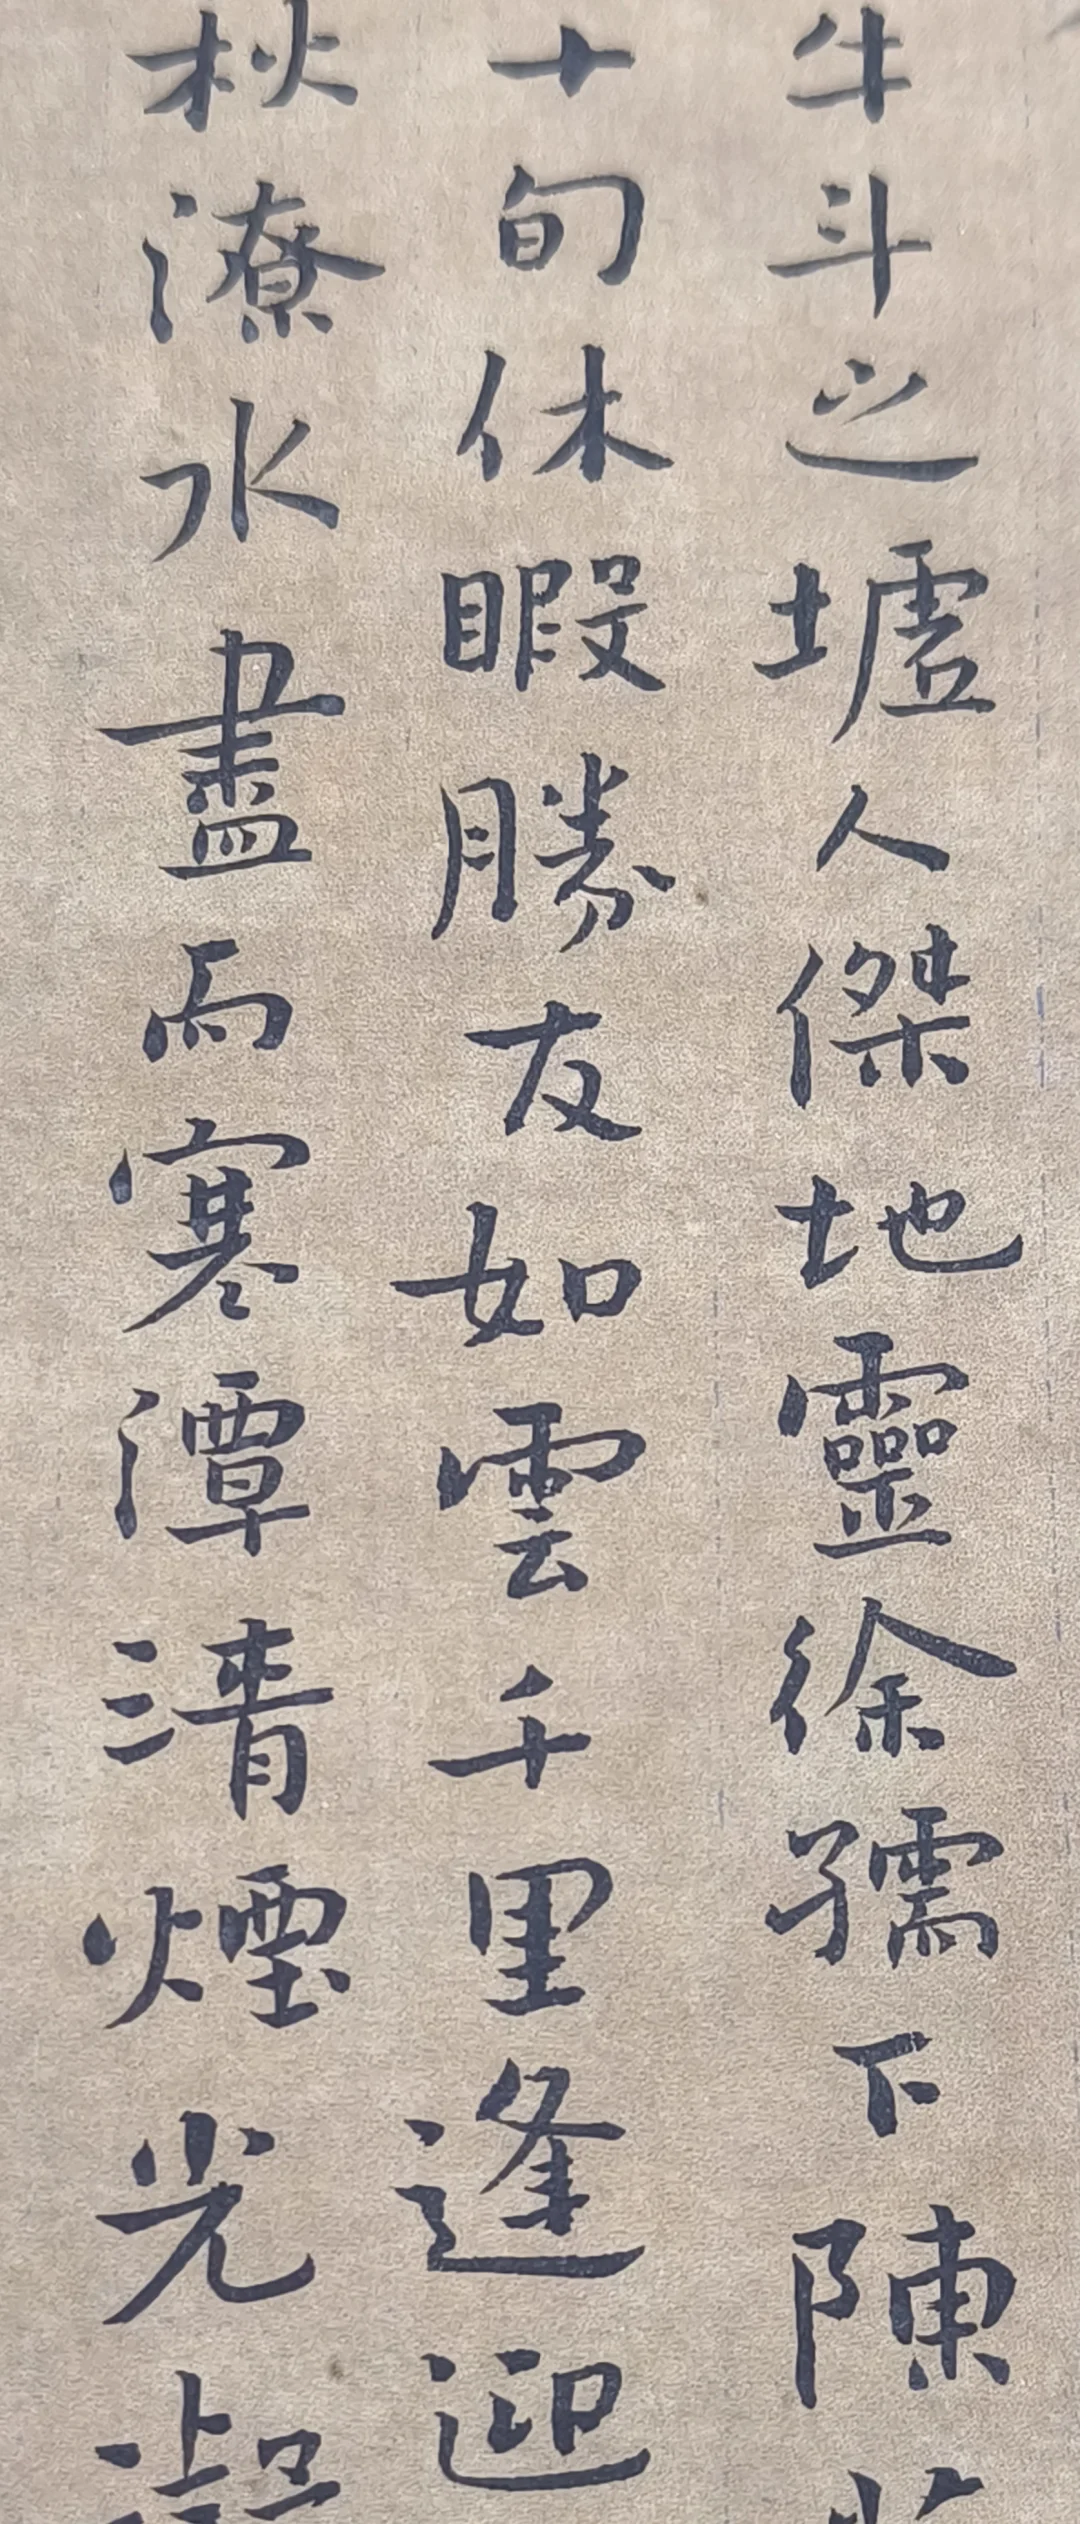 牛斗之墟人傑地靈徐孺下陳蕃
十旬休暇勝友如雲千里逢迎
秋潦水盡而寒潭清煙光凝